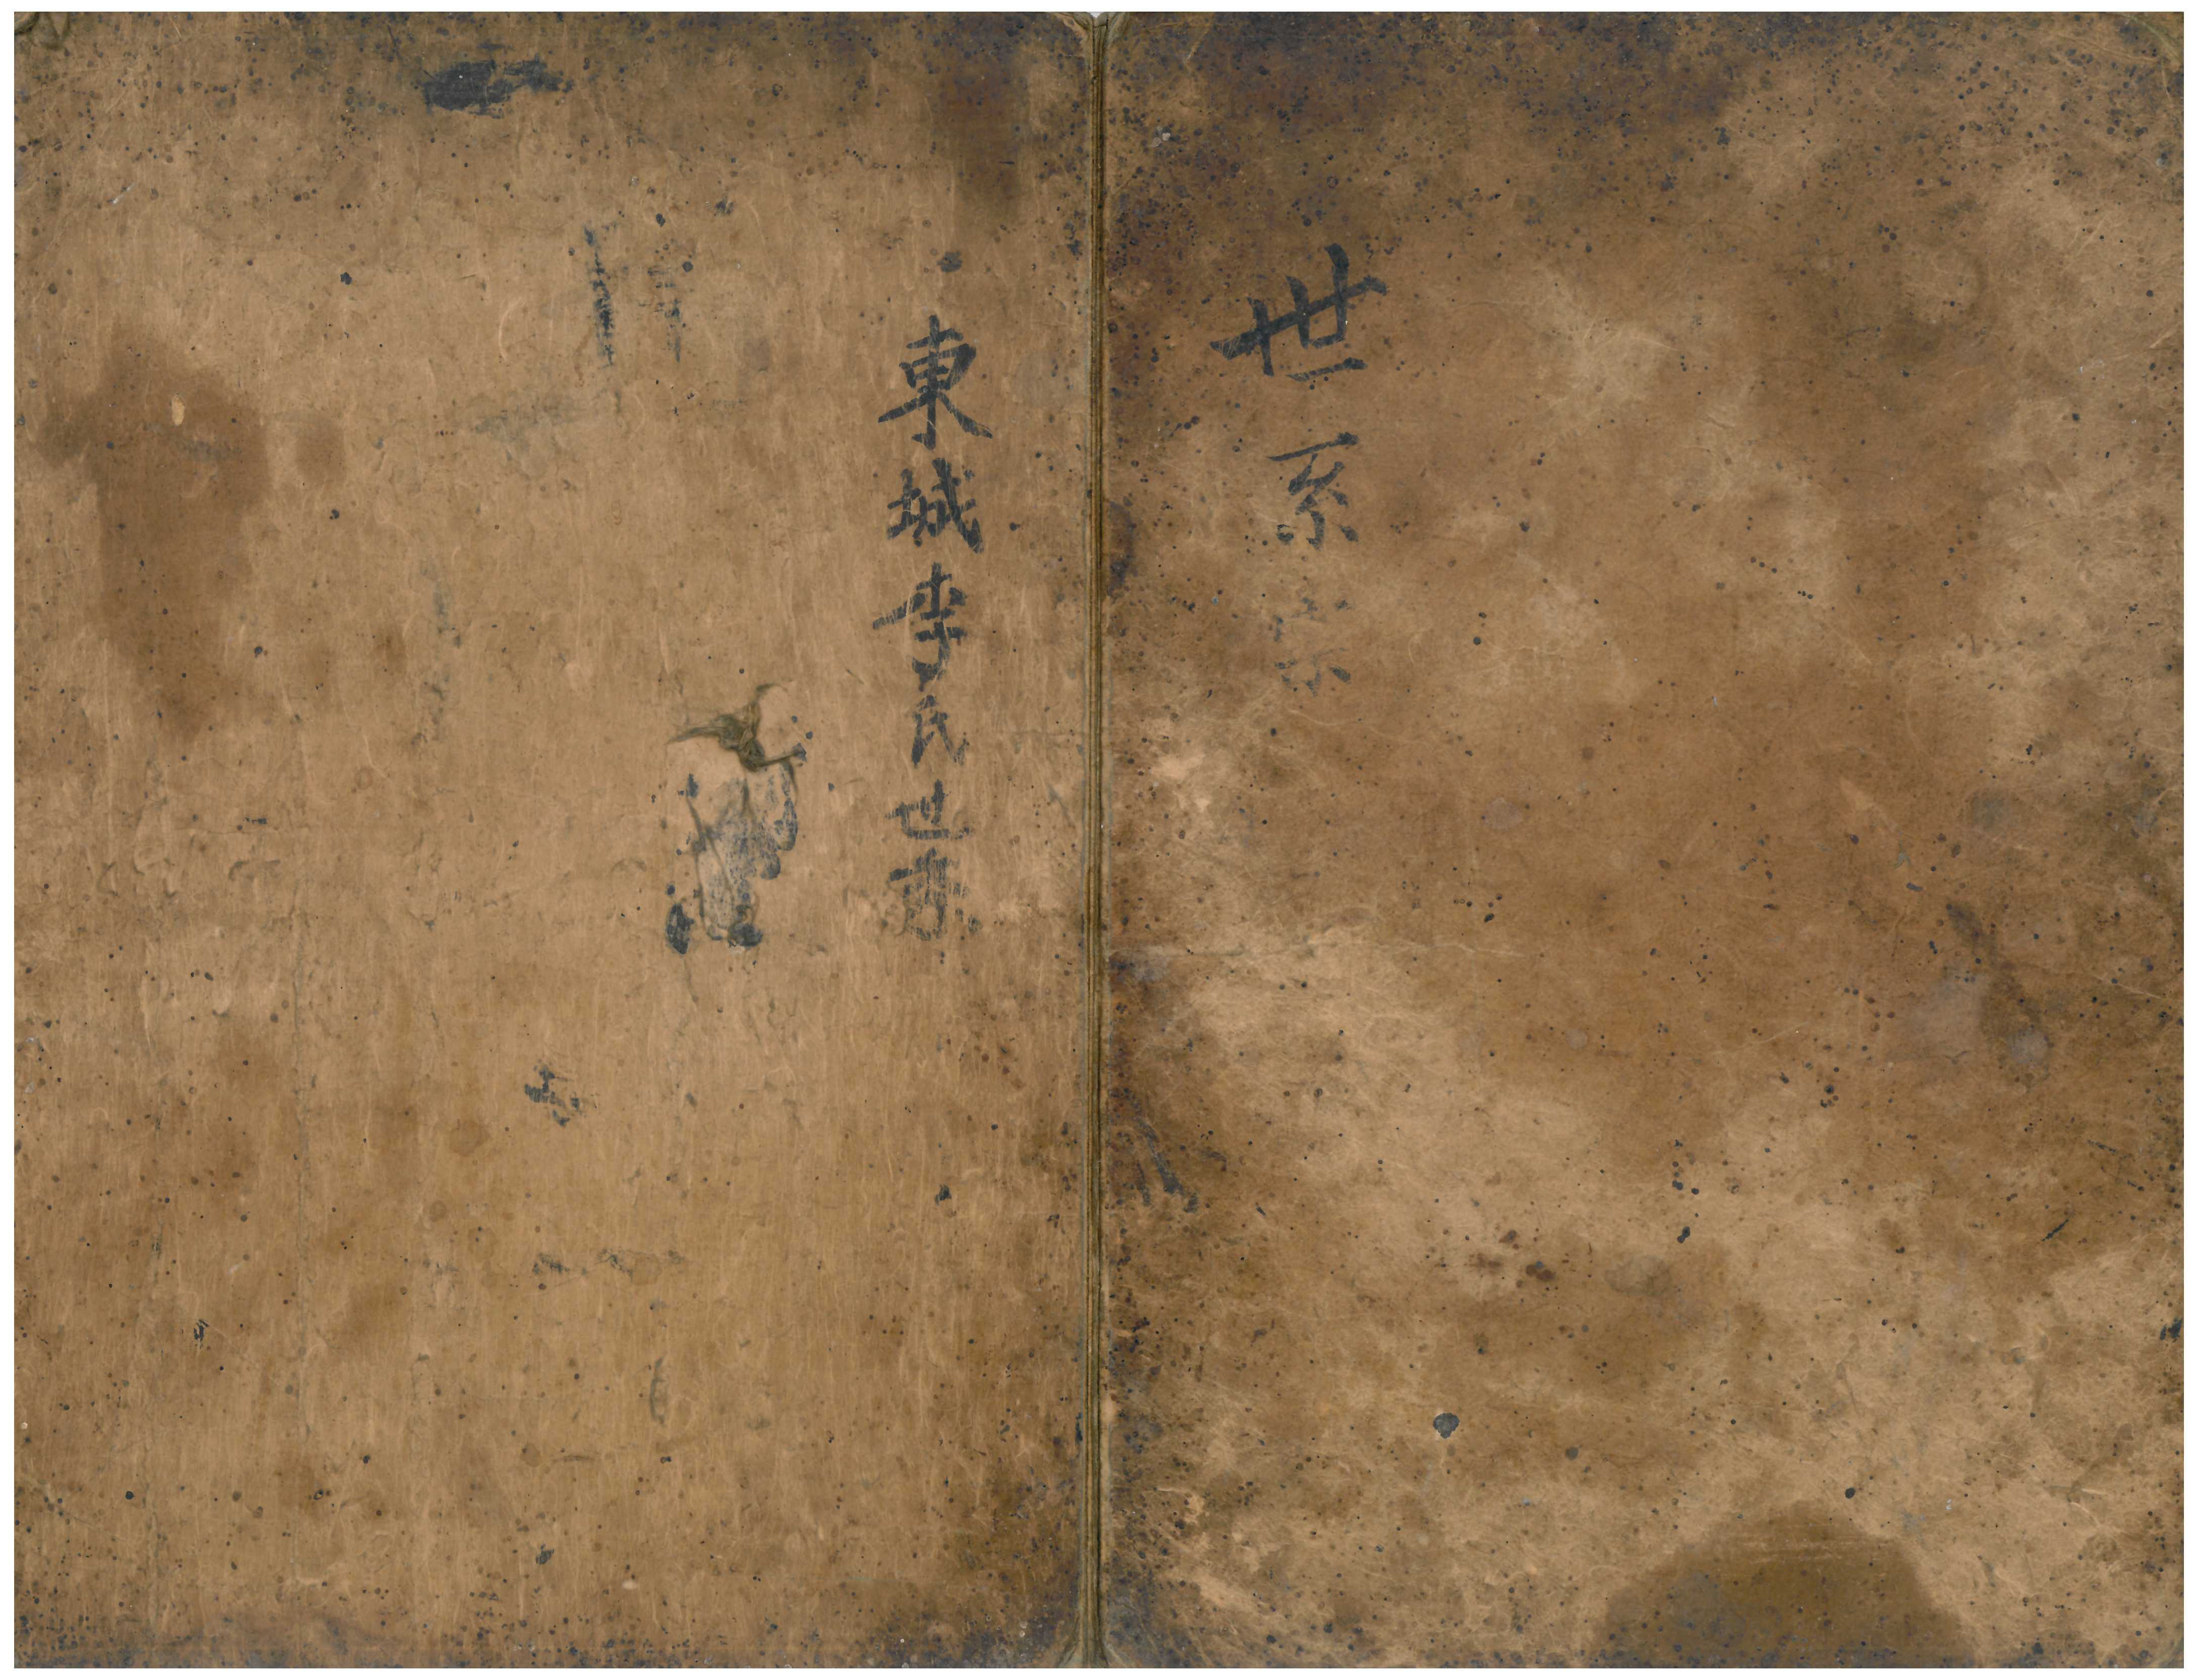 世系宗
東城李氏世系